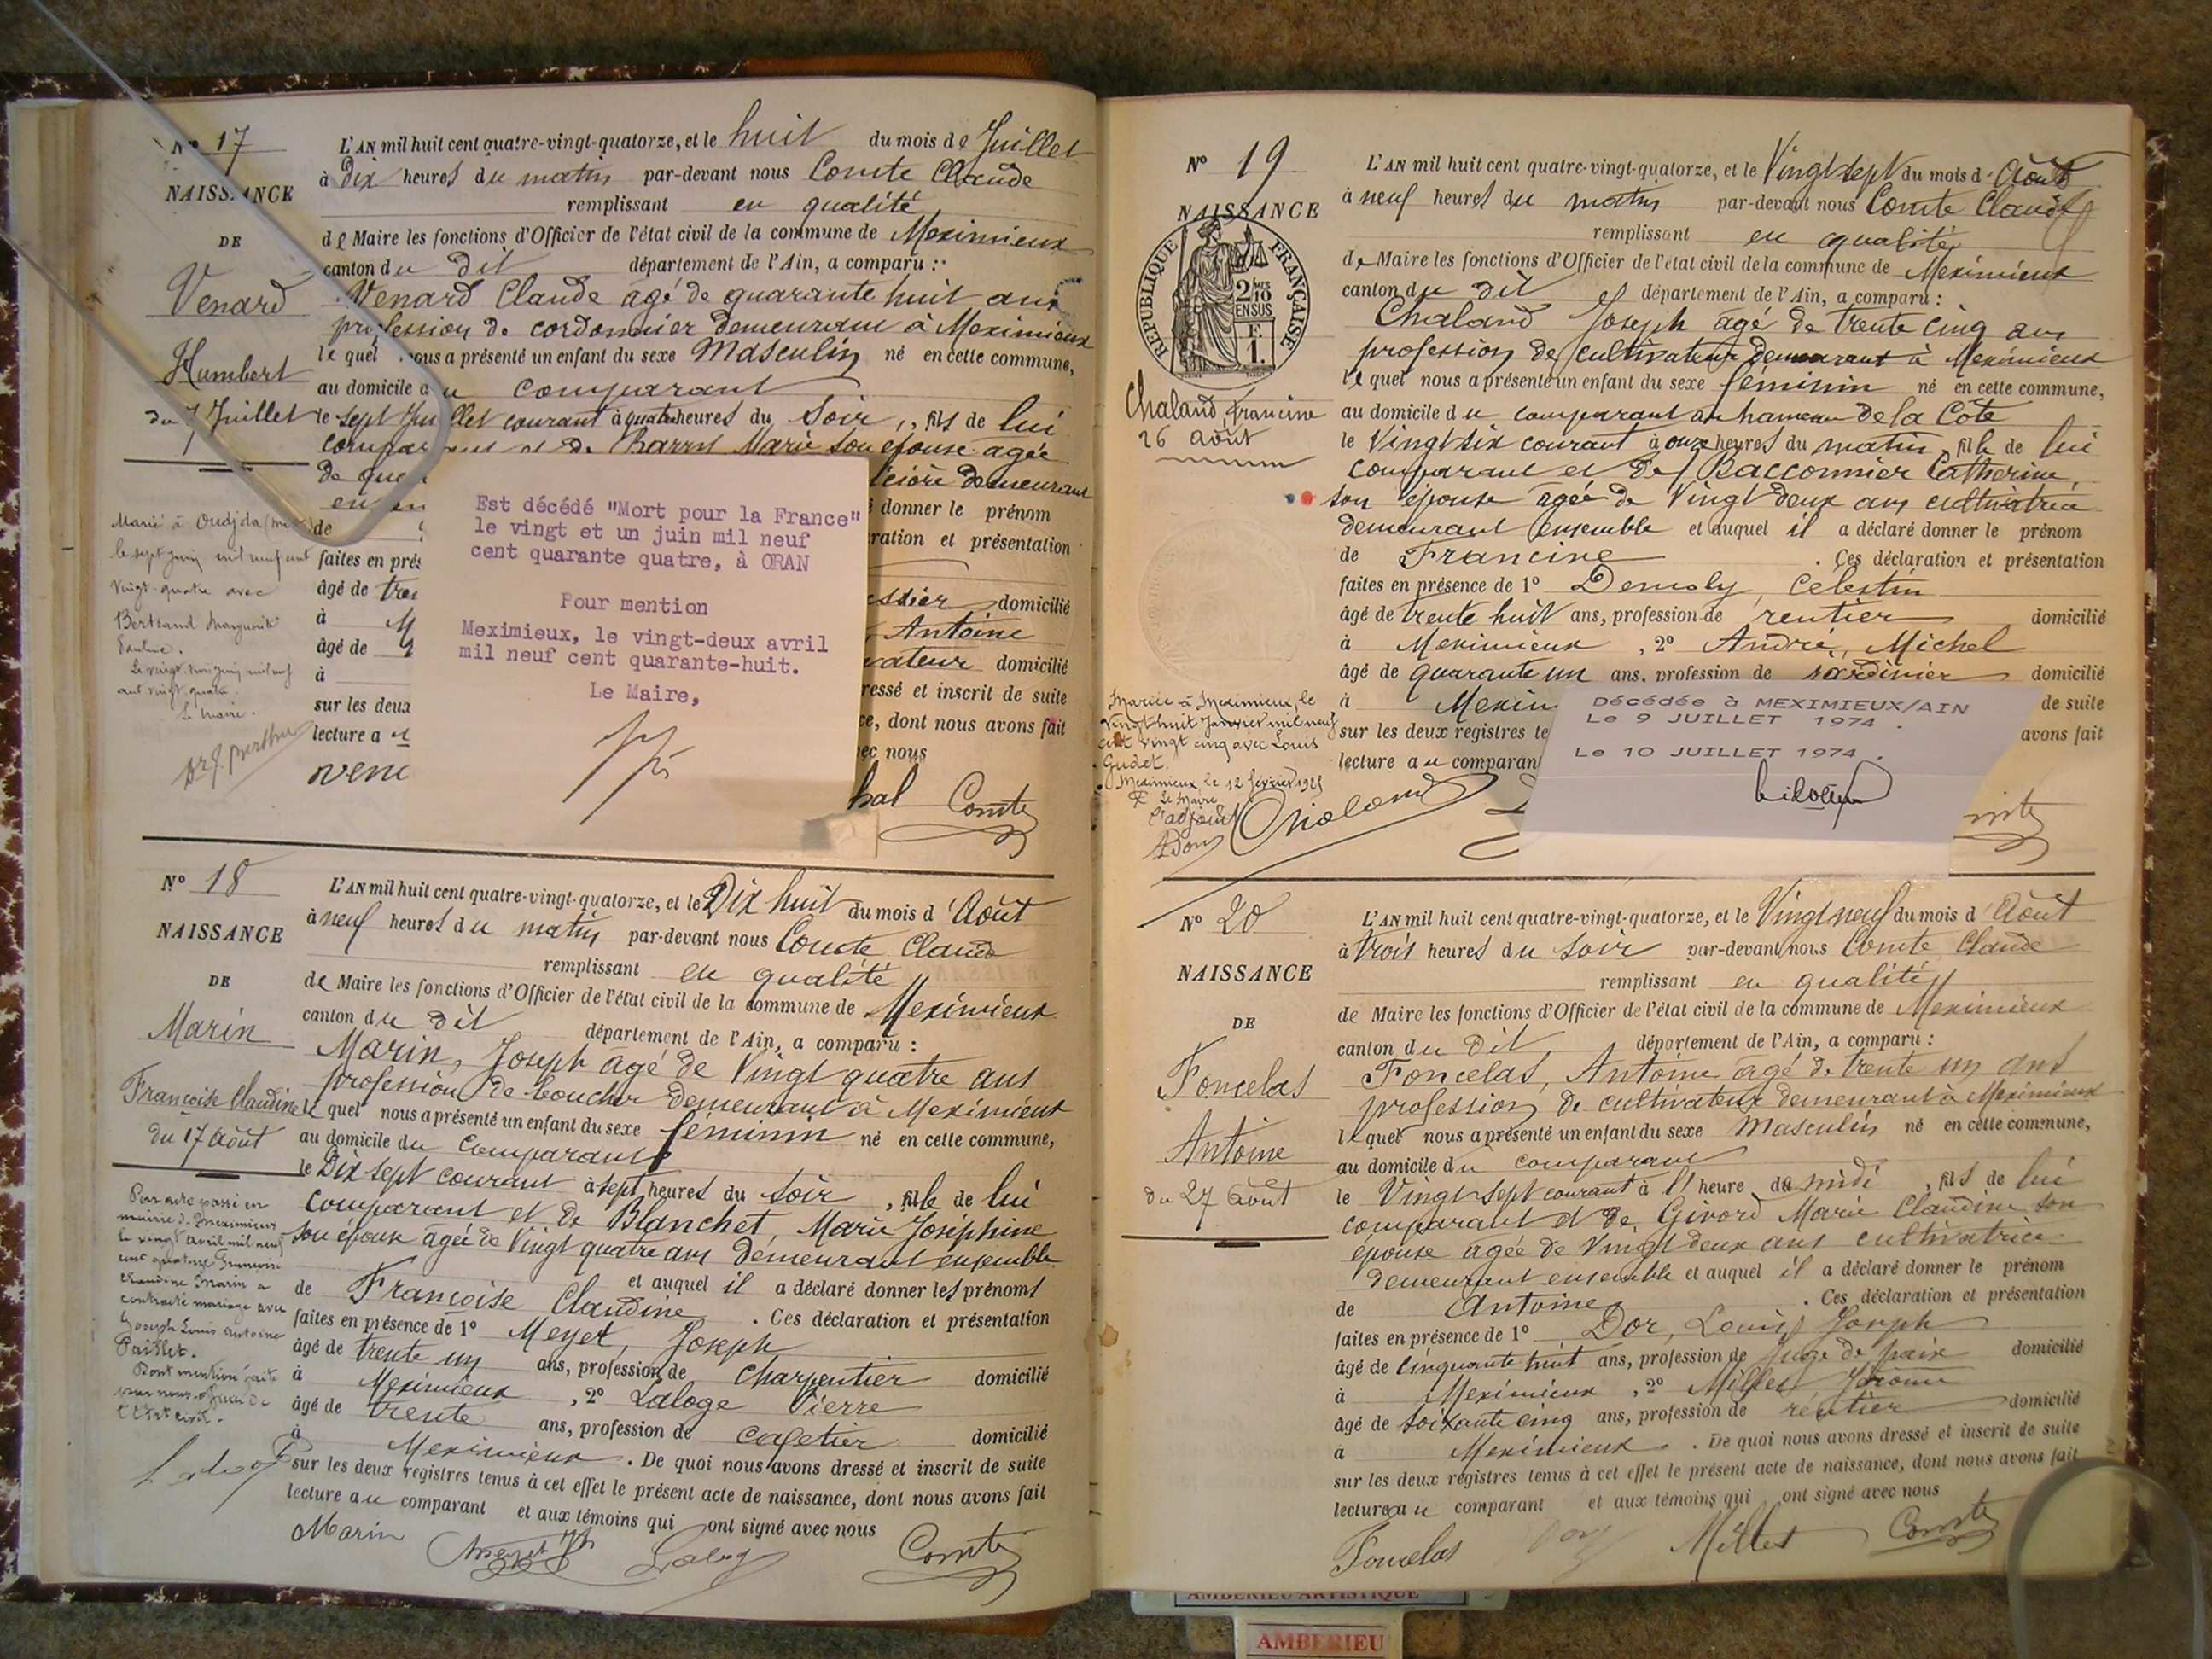 N° 17
NAISSANCE
DE
Venard
Humbert
du 7 Juillet
L'AN mil huit cent quatre-vingt-quatorze, et le huit du mois de Juillet
à Dix heures du matin par-devant nous Comte Claude
remplissant en qualité
de Maire les fonctions d'Officier de l'état civil de la commune de Meximieux
canton du dit département de l'Ain, a comparu :
Venard Claude agé de quarante huit ans
profession de cordonnier demeurant à Meximieux
le quel nous a présenté un enfant du sexe Masculin né en cette commune,
au domicile du comparant
le sept Juillet courant à quatre heures du Soir, fils de lui
comparant et de Marie son épouse agée
de demeurant
donner le prénom
de ration et présentation
faites en prés
âgé de domicilié
à Antoine
âgé de vateur domicilié
à ressé et inscrit de suite
sur les deux ce, dont nous avons fait
lecture a ec nous
Comte
Marié à Oudjda
le sept Juin mil neuf cent
vingt-quatre avec
Bertrand Marguerite
Le vingt juin mil neuf
cent vingt quatre.
Le Maire.
Est décédé "Mort pour la France"
le vingt et un juin mil neuf
cent quarante quatre, à ORAN
Pour mention
Meximieux, le vingt-deux avril
mil neuf cent quarante-huit.
Le Maire,
N° 18
NAISSANCE
DE
Marin
Françoise Claudine
du 17 Août
L'AN mil huit cent quatre-vingt-quatorze, et le Dix huit du mois d'Août
à neuf heures du matin par-devant nous Comte Claude
remplissant en qualité
de Maire les fonctions d'Officier de l'état civil de la commune de Meximieux
canton du dit département de l'Ain, a comparu :
Marin, Joseph âgé de Vingt quatre ans
profession de boucher demeurant à Meximieux
le quel nous a présenté un enfant du sexe feminin né en cette commune,
au domicile du comparant
le Dix sept courant à sept heures du soir, fille de lui
comparant et de Blanchet, Marie Joséphine
son épouse agée de Vingt quatre ans demeurant ensemble
et auquel il a déclaré donner les prénoms
de Françoise Claudine . Ces déclaration et présentation
faites en présence de 1° Meyet, Joseph
âgé de trente un ans, profession de charpentier domicilié
à Meximieux, 2° Laloge Pierre
âgé de trente ans, profession de cafetier domicilié
à Meximieux . De quoi nous avons dressé et inscrit de suite
sur les deux registres tenus à cet effet le présent acte de naissance, dont nous avons fait
lecture au comparant et aux témoins qui ont signé avec nous
Marin Comte
Par acte passé en
mairie de Meximieux
le vingt avril mil neuf
cent quatorze Françoise
Claudine Marin a
contracté mariage avec
Joseph Louis Antoine
Paillet.
Dont mention faite
par nous officier de
l'Etat civil.
N° 19
NAISSANCE
RÉPUBLIQUE FRANÇAISE
2/10 EN SUS
1 F.
Chaland Francine
26 Août
L'AN mil huit cent quatre-vingt-quatorze, et le Vingt sept du mois d'Août
à neuf heures du matin par-devant nous Comte Claude
remplissant en qualité
de Maire les fonctions d'Officier de l'état civil de la commune de Meximieux
canton du dit département de l'Ain, a comparu :
Chaland Joseph agé de trente cinq ans
profession de cultivateur demeurant à Meximieux
le quel nous a présenté un enfant du sexe féminin né en cette commune,
au domicile du comparant au hameau de la Côte
le Vingt six courant à onze heures du matin, fille de lui
comparant et de Bacconnier Catherine,
son épouse agée de Vingt deux ans cultivatrice
demeurant ensemble et auquel il a déclaré donner le prénom
de Francine . Ces déclaration et présentation
faites en présence de 1° Demoly, Célestin
âgé de trente huit ans, profession de rentier domicilié
à Meximieux, 2° André, Michel
âgé de quarante un ans, profession de jardinier domicilié
à Mexim de suite
sur les deux registres te avons fait
lecture au comparan
Mariée à Meximieux, le
vingt-huit Janvier mil neuf
cent vingt cinq avec Louis
Gudet.
Meximieux le 12 février 1925
Le Maire
L'adjoint
Chaland
Décédée à MEXIMIEUX/AIN
Le 9 JUILLET 1974
Le 10 JUILLET 1974 .
N° 20
NAISSANCE
DE
Foncelas
Antoine
du 27 Août
L'AN mil huit cent quatre-vingt-quatorze, et le Vingt neuf du mois d'Août
à trois heures du soir par-devant nous Comte Claude
remplissant en qualité
de Maire les fonctions d'Officier de l'état civil de la commune de Meximieux
canton du Dit département de l'Ain, a comparu :
Foncelas, Antoine agé de trente un ans
profession de cultivateur demeurant à Meximieux
le quel nous a présenté un enfant du sexe Masculin né en cette commune,
au domicile du comparant
le Vingt sept courant à l'heure de midi, fils de lui
comparant et de Givord Marie Claudine son
épouse agée de Vingt deux ans cultivatrice
demeurant ensemble et auquel il a déclaré donner le prénom
de Antoine . Ces déclaration et présentation
faites en présence de 1° Dor, Louis Joseph
âgé de cinquante huit ans, profession de Juge de paix domicilié
à Meximieux, 2° Millet Jérome
âgé de soixante cinq ans, profession de rentier domicilié
à Meximieux . De quoi nous avons dressé et inscrit de suite
sur les deux registres tenus à cet effet le présent acte de naissance, dont nous avons fait
lecture au comparant et aux témoins qui ont signé avec nous
Foncelas Dor Millet Comte
AMBERIEU ARTISTIQUE
AMBERIEU